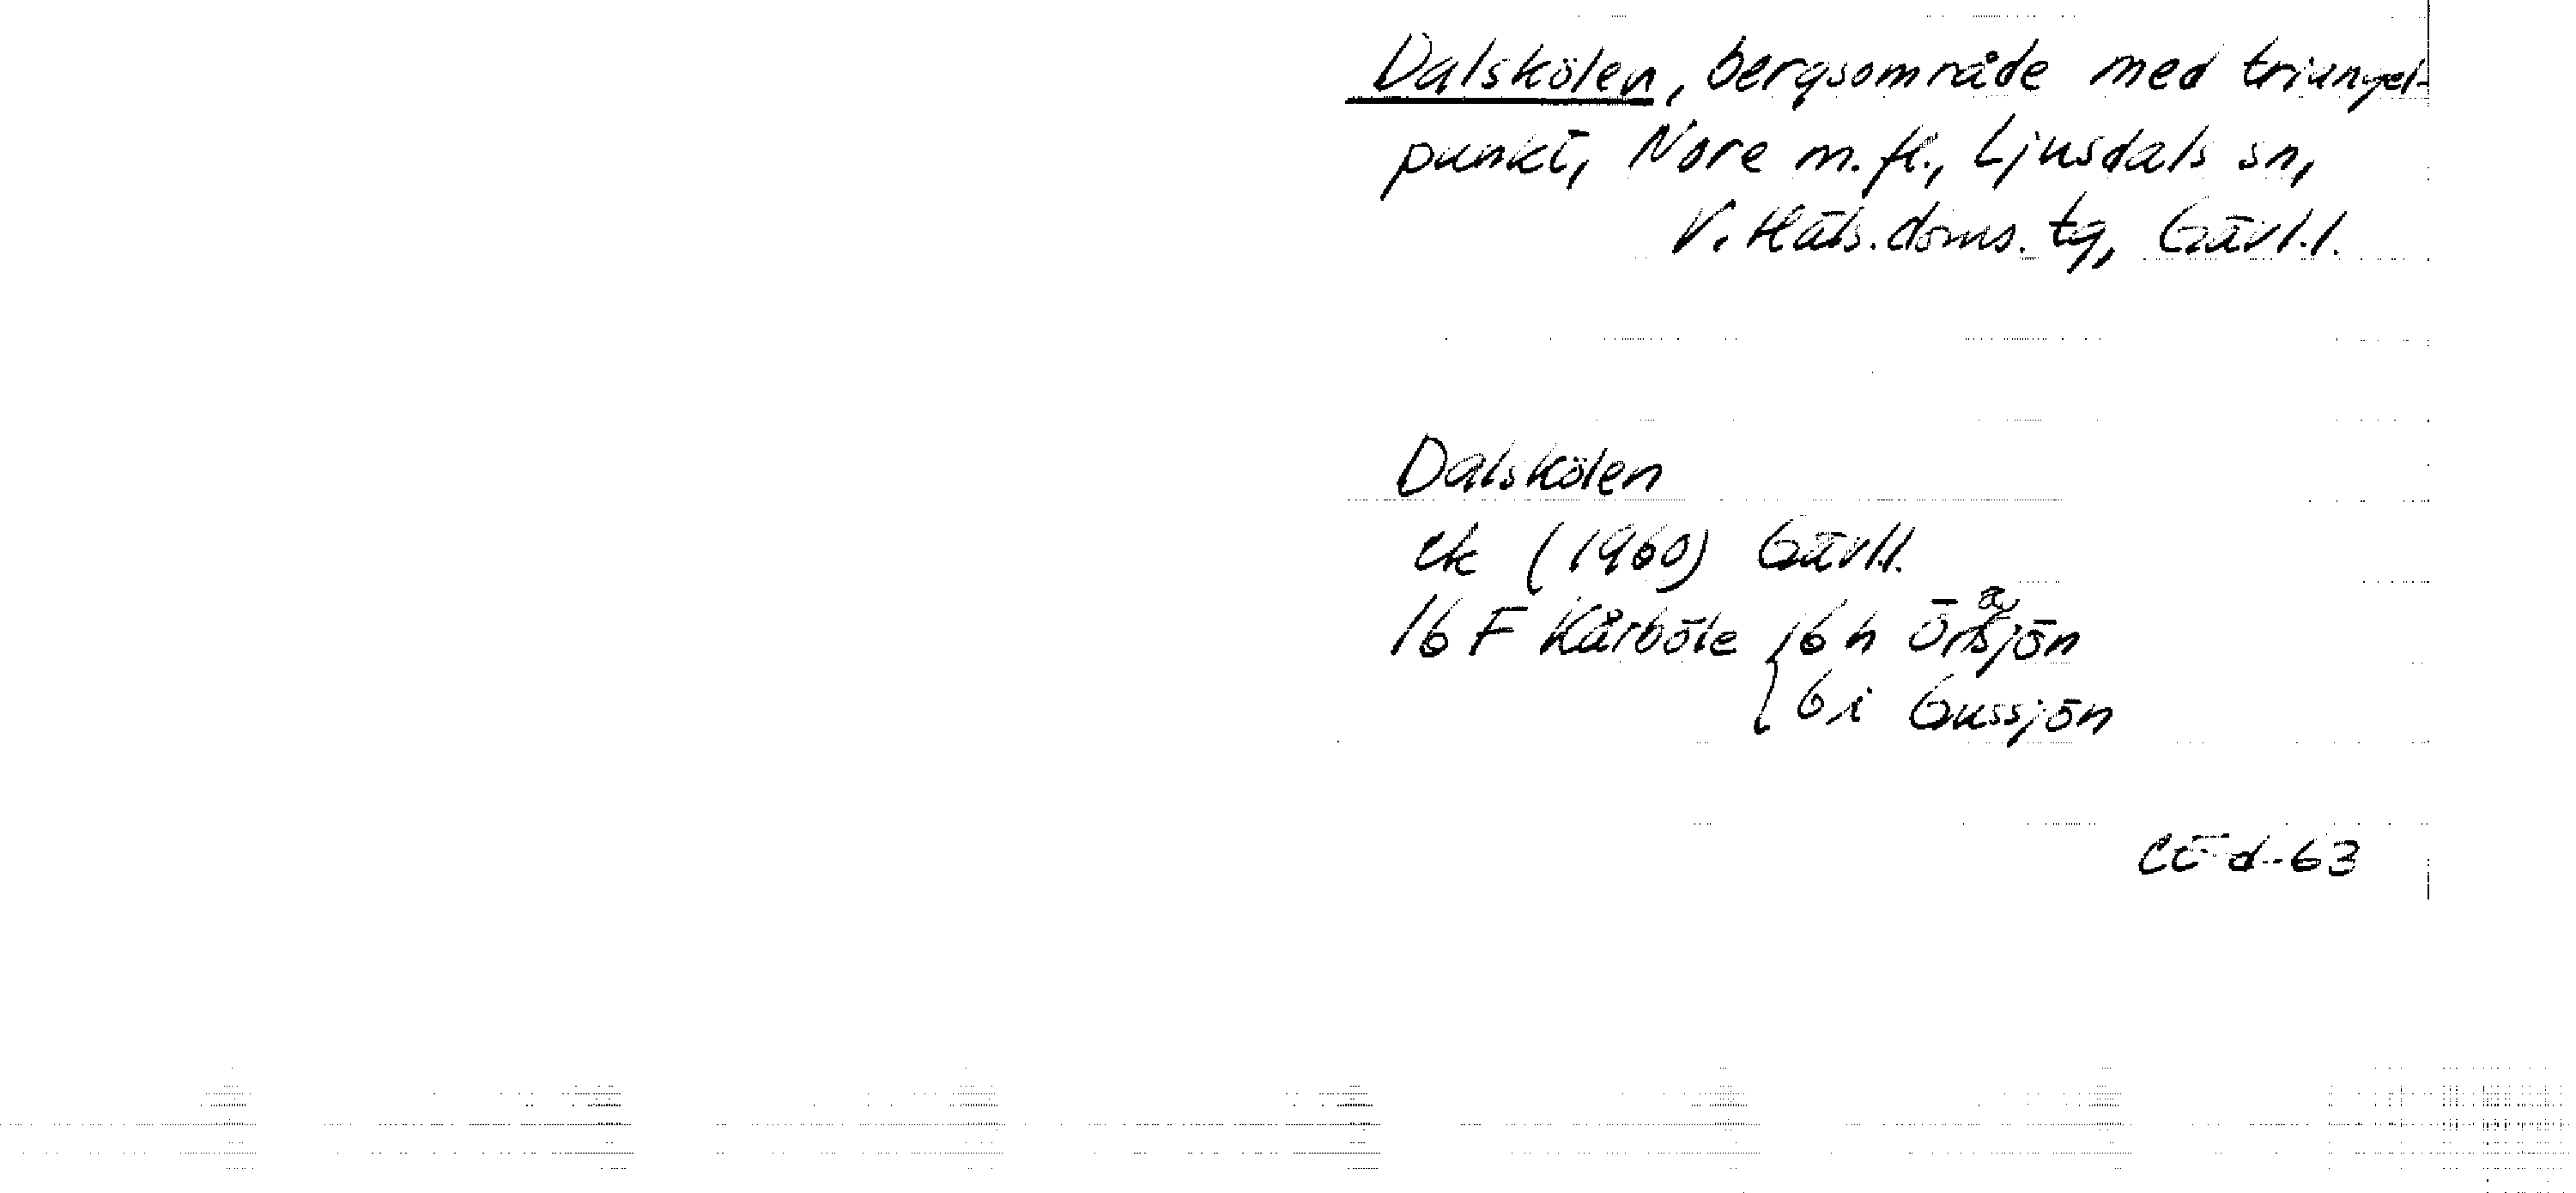 Dalskölen, bergsområde med triangel-
punkt, Nore m.fl., Ljusdals sn,
V. Häls. doms. tg, Gävl.l.
Dalskölen
ek (1960) Gävl.l.
16 F Kårböle 6 h Öråsjön
6 i Gussjön
CÖ-d-63